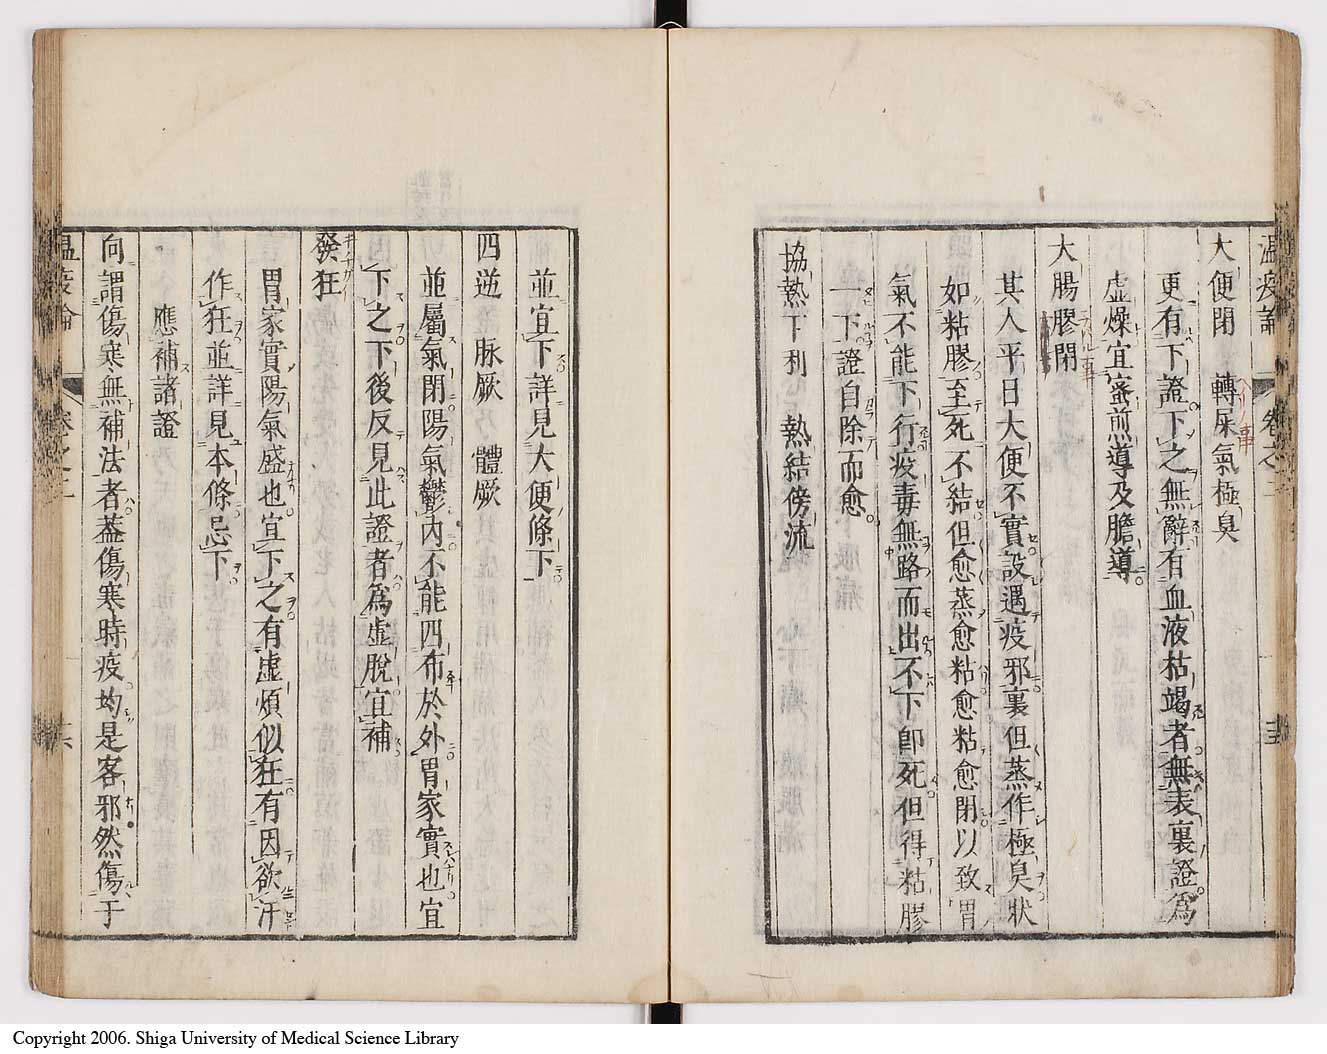 温疫論 卷之二
大便閉　轉屎氣極臭
更有下證下之無辭有血液枯竭者無表裏證爲
虚燥宜蜜煎導及膽導
大腸膠閉
其人平日大便不實設遇疫邪裏但蒸作極臭状
如粘膠至死不結但愈蒸愈粘愈粘愈閉以致胃
氣不能下行疫毒無路而出不下即死但得粘膠
一下證自除而愈
協熱下利　熱結傍流
並宜下詳見大便條下
四逆　脉厥　體厥
並屬氣閉陽氣鬱内不能四布於外胃家實也宜
下之下後反見此證者爲虚脱宜補
發狂
胃家實陽氣盛也宜下之有虚煩似狂有因欲汗
作狂並詳見本條忌下
應補諸證
向謂傷寒無補法者蓋傷寒時疫均是客邪然傷于
温疫論 卷之二 十六
Copyright 2006. Shiga University of Medical Science Library